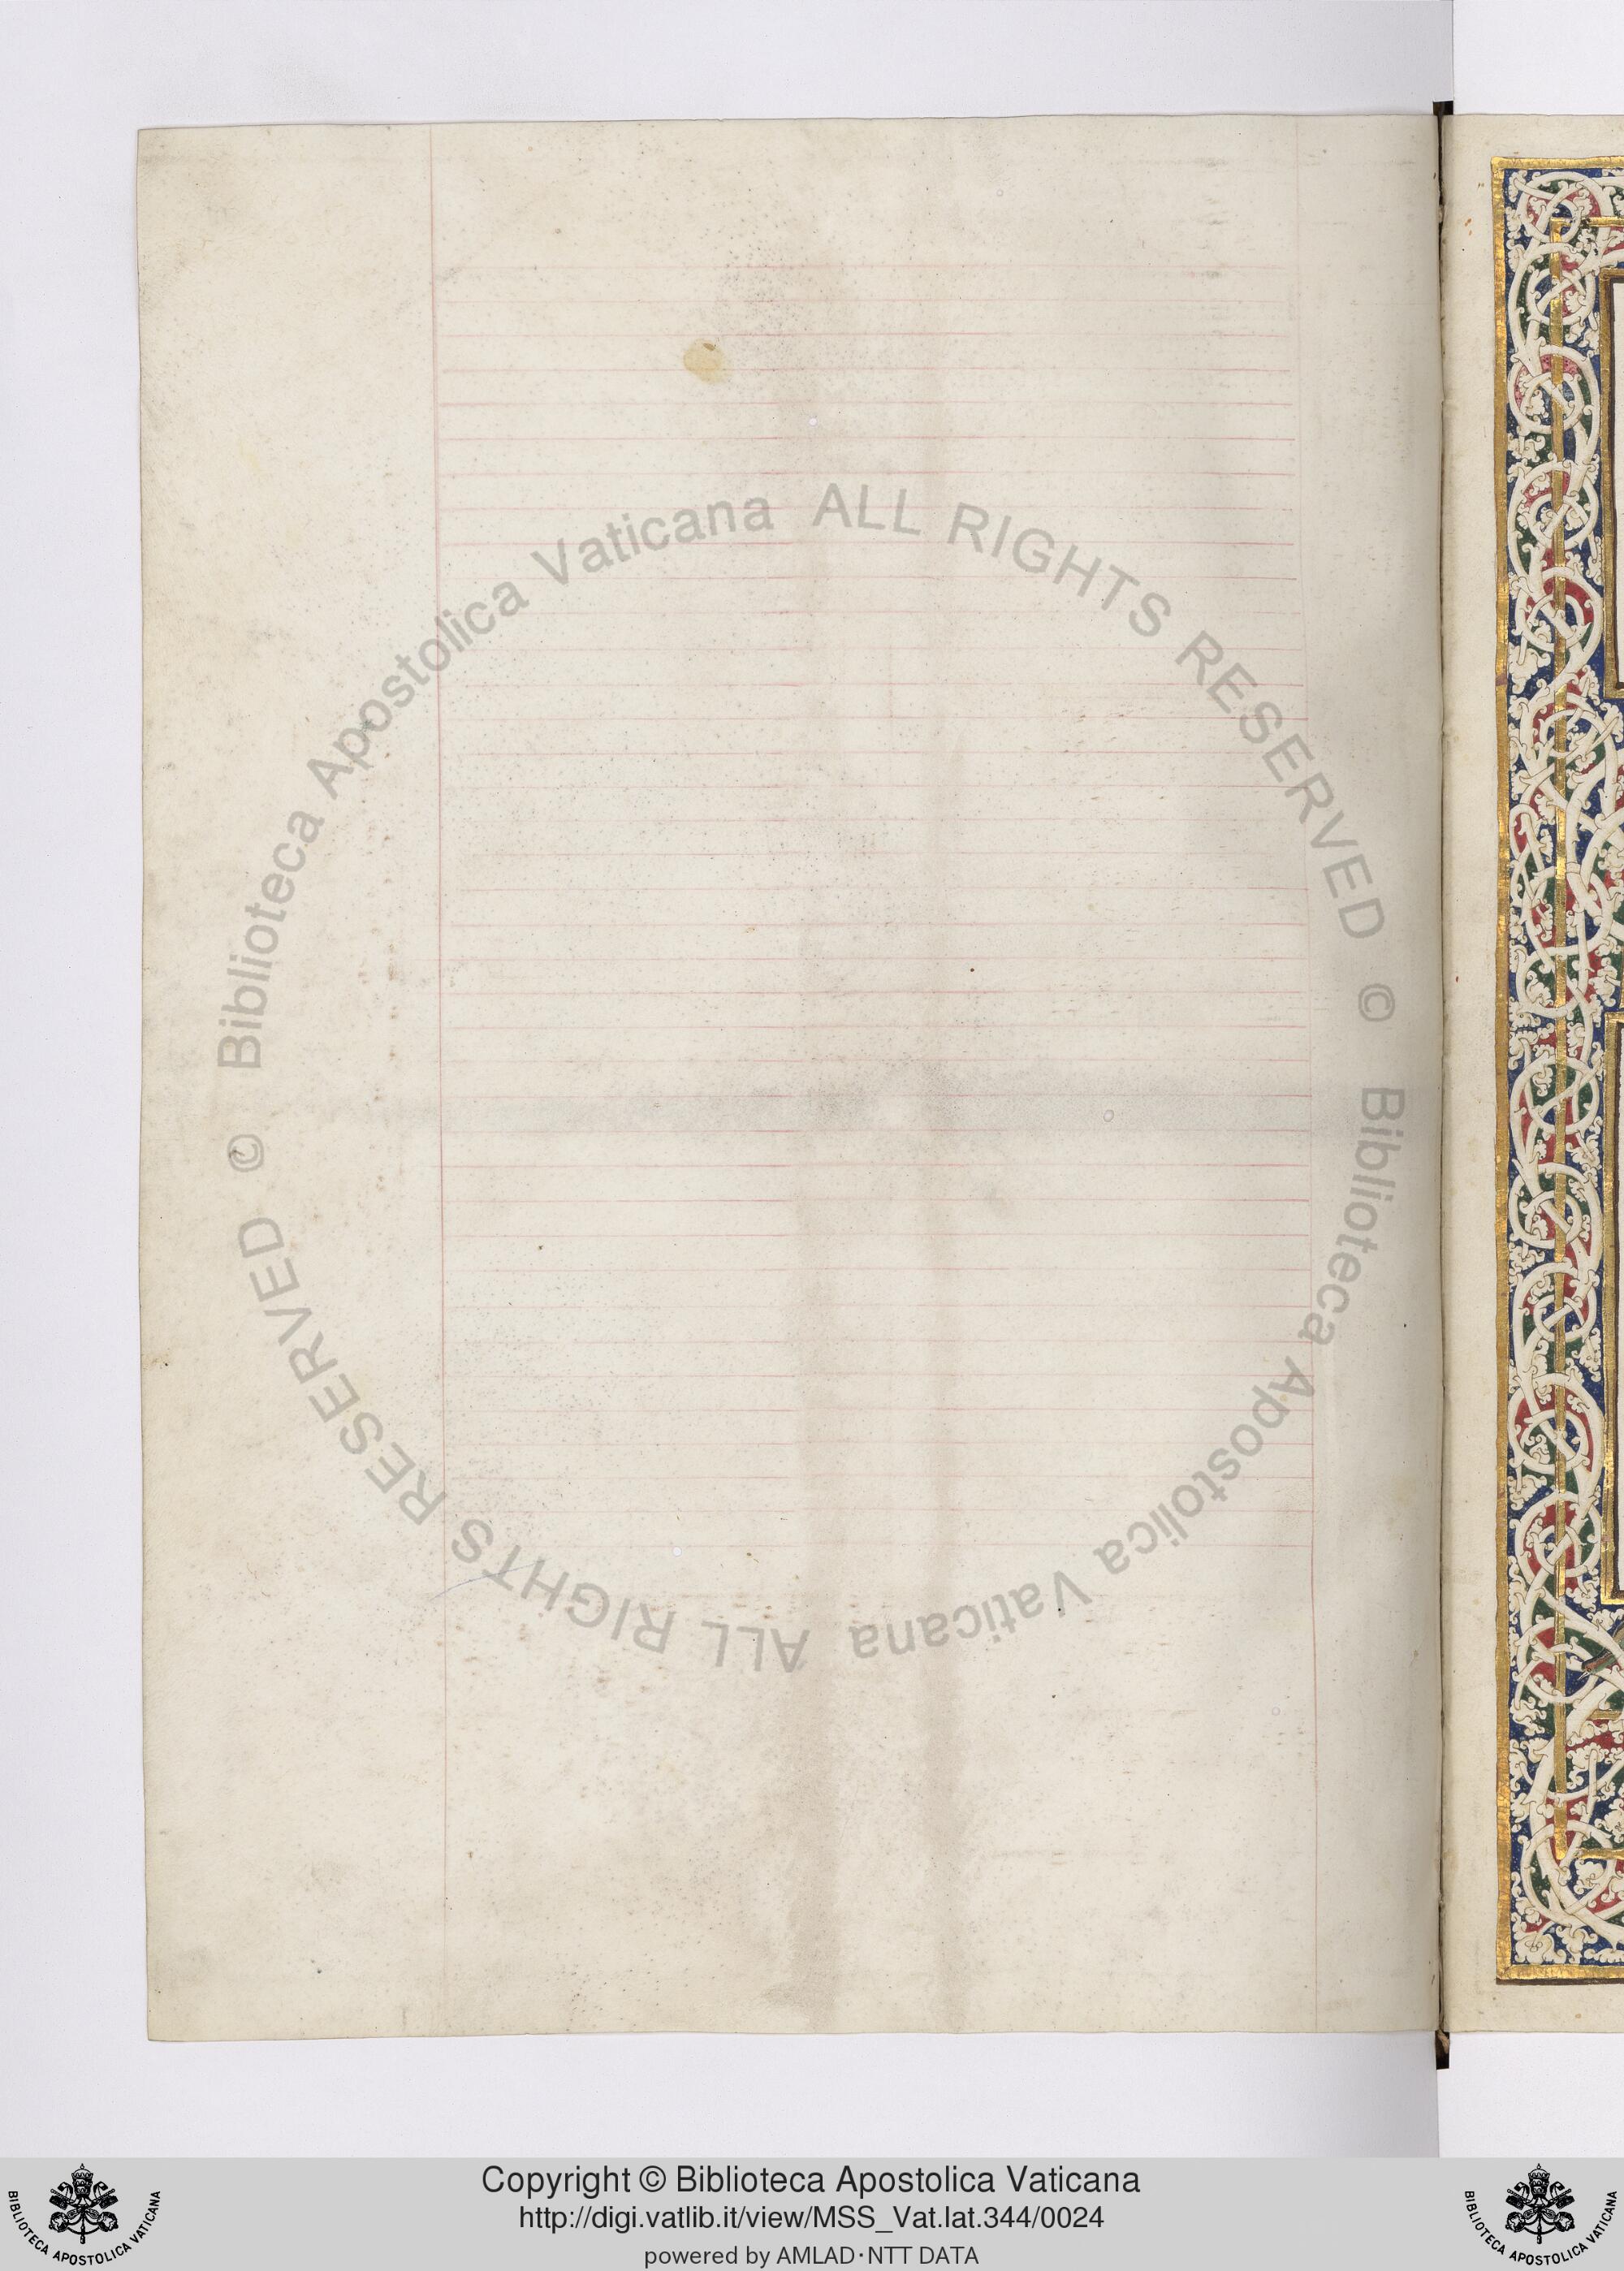 © Biblioteca Apostolica Vaticana ALL RIGHTS RESERVED
© Biblioteca Apostolica Vaticana ALL RIGHTS RESERVED
Copyright © Biblioteca Apostolica Vaticana
http://digi.vatlib.it/view/MSS_Vat.lat.344/0024
powered by AMLAD·NTT DATA
BIBLIOTECA APOSTOLICA VATICANA
BIBLIOTECA APOSTOLICA VATICANA